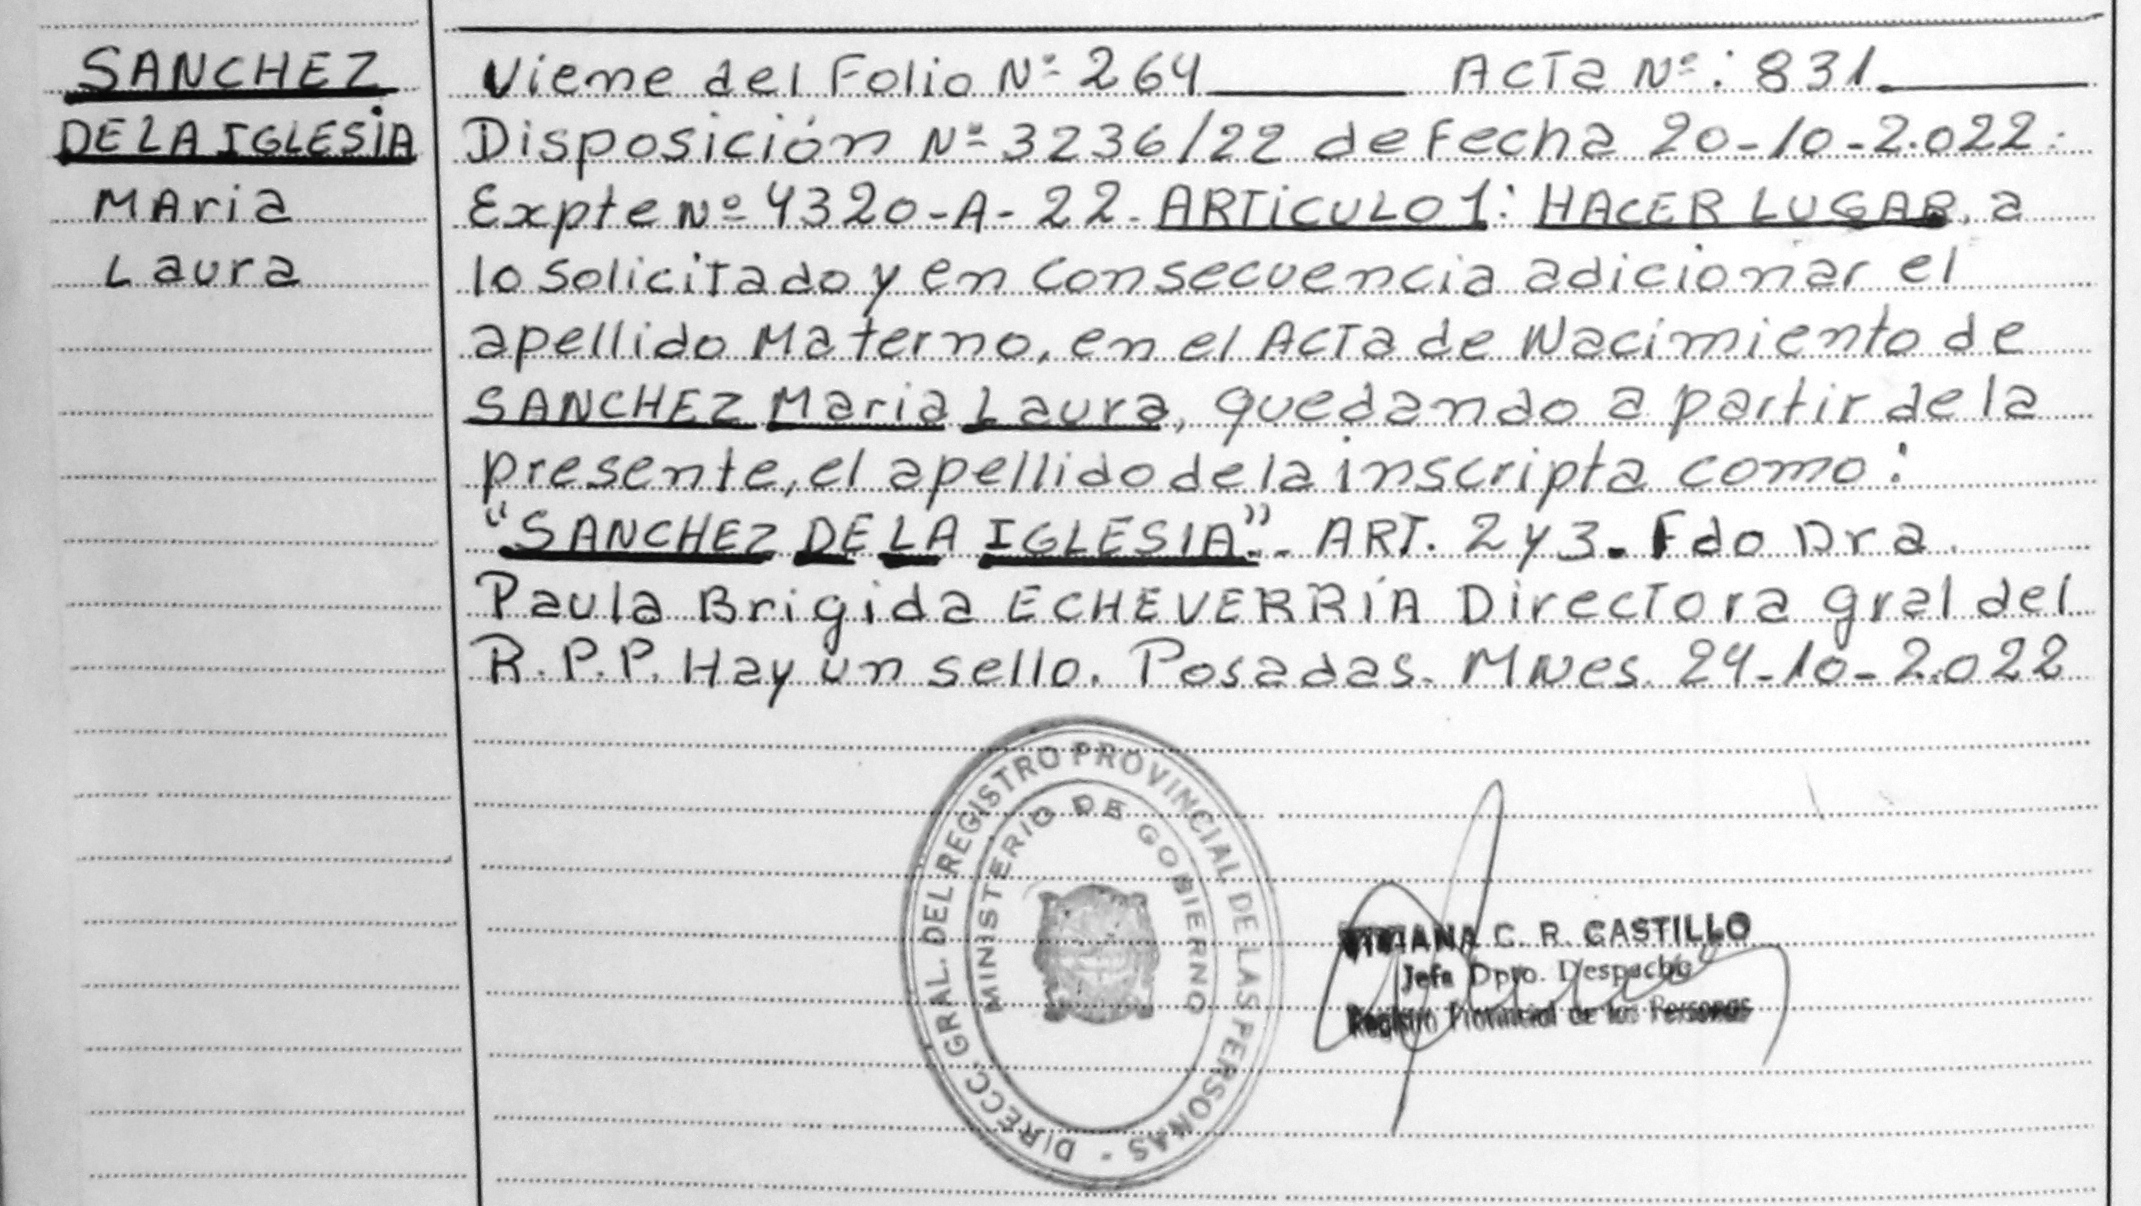 SANCHEZ
DE LA IGLESIA
Maria
Laura
Viene del Folio Nº 264 Acta Nº: 831
Disposición Nº 3236/22 de Fecha 20-10-2.022.
Expte Nº 4320-A-22. ARTICULO 1: HACER LUGAR, a
lo solicitado y en consecuencia adicionar el
apellido Materno, en el Acta de Nacimiento de
SANCHEZ Maria Laura, quedando a partir de la
presente, el apellido de la inscripta como:
"SANCHEZ DE LA IGLESIA".. ART. 2 y 3. Fdo Dra.
Paula Brigida ECHEVERRÍA Directora gral del
R.P.P. Hay un sello. Posadas. MNes. 24-10-2.022
DIRECC. GRAL. DEL REGISTRO PROVINCIAL DE LAS PERSONAS -
MINISTERIO DE GOBIERNO
VIVIANA C. R. CASTILLO
Jefa Dpto. Despacho
Registro Provincial de las Personas